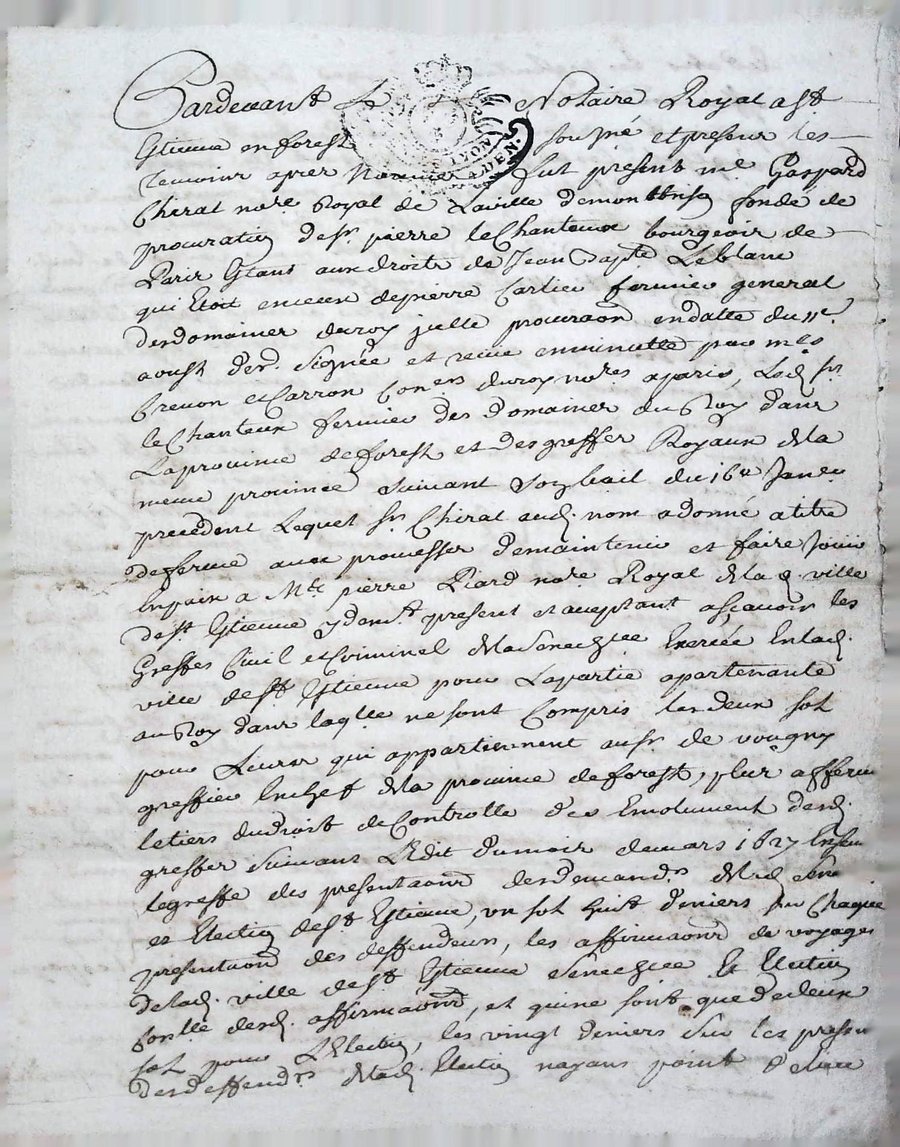 Pardevant Le Notaire Royal a st
Etienne en forest sousne et presens les
temoins apres Nommes fut present me Gaspard
Chirat nore Royal de La ville demontbrison fondé de
procuration de sr pierre leChanteux bourgeois de
Paris Etant aux droits de Jean bapte Leblanc
qui Etoit en celux depierre Carlier fermier general
des domaines du roy jcelle procuraon en datte du 11e
aoust der. Signée et recue en minutte par mes
Crevon et Carron Coners du roy nores a paris, Led sr
leChanteux fermier des domaines du Roy dans
La province de forest et des greffes Royaux de la
meme province suivant son bail du 16e Janer
precedent Lequel sr Chirat aud. nom a donné a titre
deferme avec promesses demaintenir et faire Jouir
En paix a Me pierre Piard nore Royal de lad. ville
de st Etienne y demt present et aceptant asçavoir les
Greffes Civil et Criminel de la Senechcée Exercée En lad.
ville de st Etienne pour La partie apartenante
au Roy dans laqlle ne sont Compris les deux sol
pour Livres qui appartiennent au sr de vougny
greffier En chef de la province de forest, plus afferme
le tiers du droit de Controlle des Emolument desd.
greffes suivant L'Edit du mois de mars 1627 Ensem
le greffe des presentaons des demandrs de lad Sene
et Election de st Etienne, un sol huit deniers sur Chaque
presentaon des deffendeurs, les affirmaons de voyages
de lad. ville de st Etienne Senechcée et Election
Conlle desd. affirmaons, et qui ne sont que de deux
sol pour L'Election, les vingt deniers sur les presen
des deffendrs de lad. Election nayans point